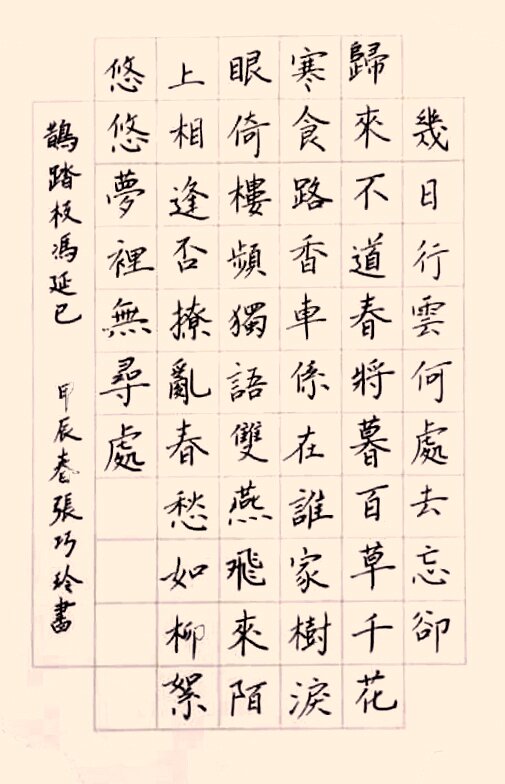 幾日行雲何處去忘卻
歸來不道春將暮百草千花
寒食路香車係在誰家樹淚
眼倚樓頻獨語雙燕飛來陌
上相逢否撩亂春愁如柳絮
悠悠夢裡無尋處
鵲踏枝馮延巳 甲辰春張巧玲書